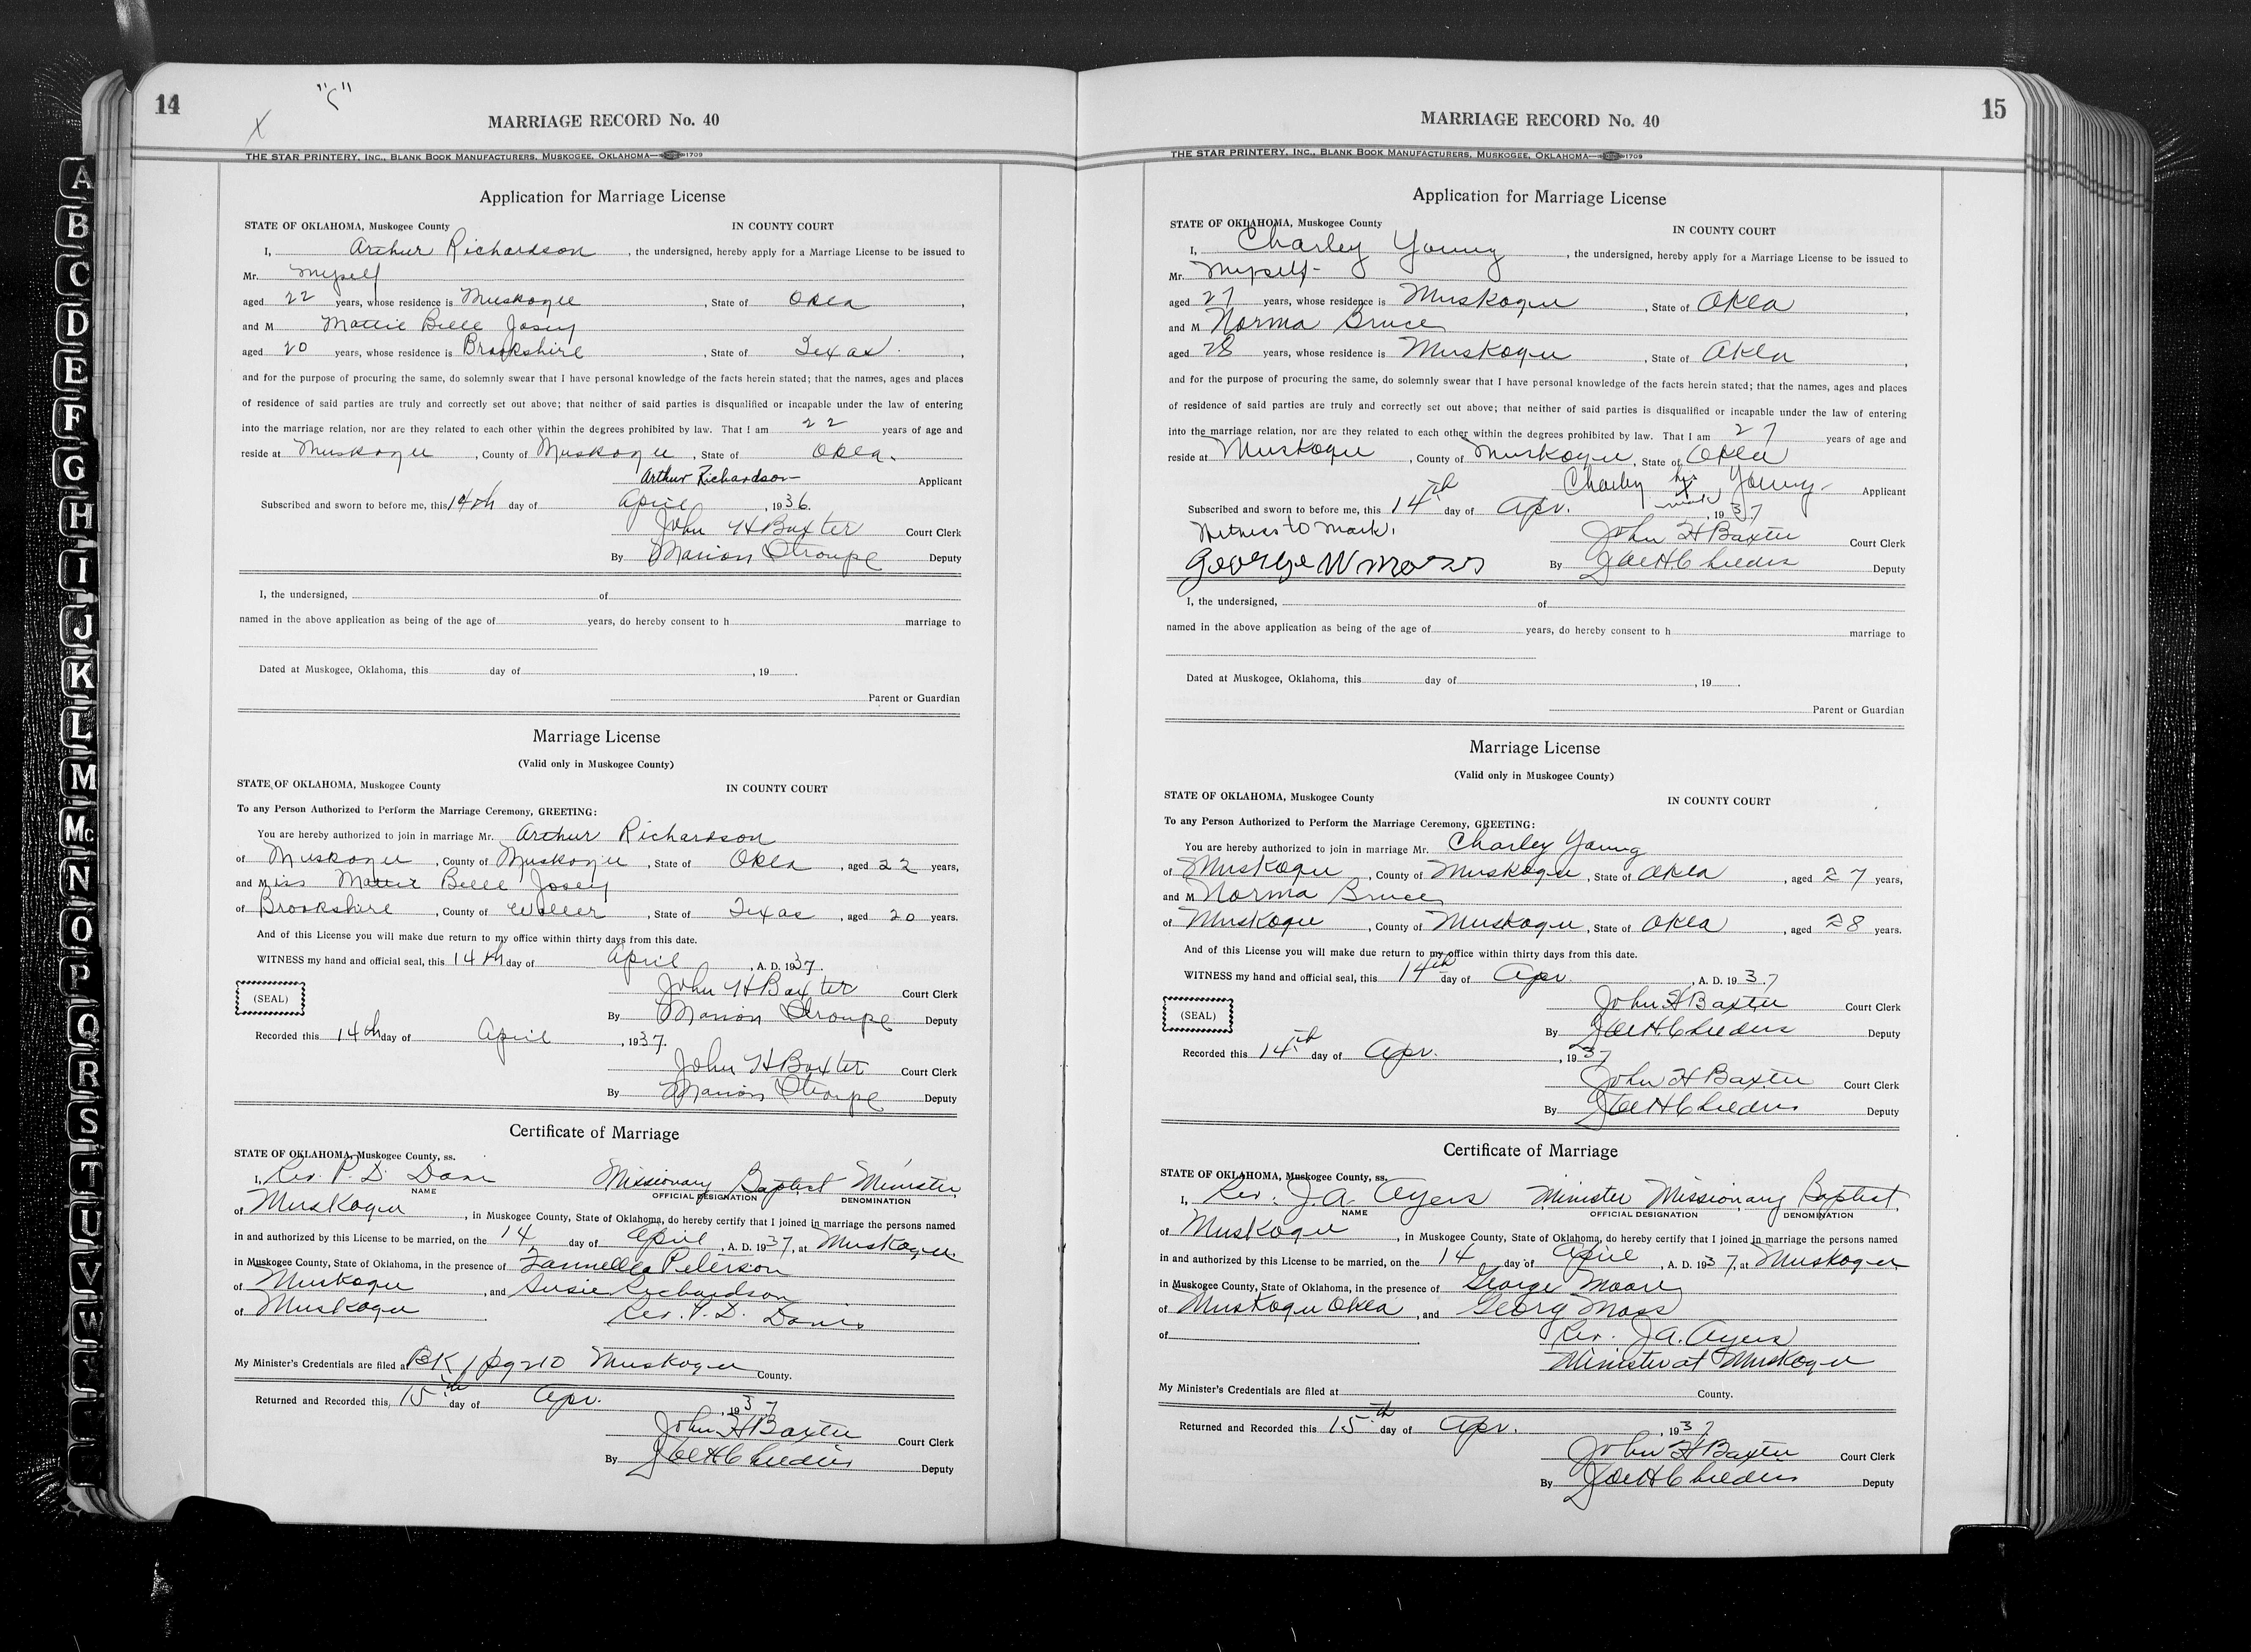 14
X
"C"
MARRIAGE RECORD No. 40
THE STAR PRINTERY, INC., BLANK BOOK MANUFACTURERS, MUSKOGEE, OKLAHOMA 1709
Application for Marriage License
STATE OF OKLAHOMA, Muskogee County IN COUNTY COURT
I, Arthur Richardson, the undersigned, hereby apply for a Marriage License to be issued to
Mr. Myself
aged 22 years, whose residence is Muskogee, State of Okla,
and M Mattie Belle Josey
aged 20 years, whose residence is Brookshire, State of Texas.,
and for the purpose of procuring the same, do solemnly swear that I have personal knowledge of the facts herein stated; that the names, ages and places
of residence of said parties are truly and correctly set out above; that neither of said parties is disqualified or incapable under the law of entering
into the marriage relation, nor are they related to each other within the degrees prohibited by law. That I am 22 years of age and
reside at Muskogee, County of Muskogee, State of Okla.
Arthur Richardson Applicant
Subscribed and sworn to before me, this 14th day of April, 1936.
John H Baxter Court Clerk
By Marion Stroupe Deputy
I, the undersigned, of
named in the above application as being of the age of years, do hereby consent to h marriage to
Dated at Muskogee, Oklahoma, this day of , 19 .
Parent or Guardian
Marriage License
(Valid only in Muskogee County)
STATE OF OKLAHOMA, Muskogee County IN COUNTY COURT
To any Person Authorized to Perform the Marriage Ceremony, GREETING:
You are hereby authorized to join in marriage Mr. Arthur Richardson
of Muskogee, County of Muskogee, State of Okla, aged 22 years,
and Miss Mattie Belle Josey
of Brookshire, County of Waller, State of Texas, aged 20 years.
And of this License you will make due return to my office within thirty days from this date.
WITNESS my hand and official seal, this 14th day of April, A. D. 1937.
John H Baxter Court Clerk
(SEAL)
By Marion Stroupe Deputy
Recorded this 14th day of April, 1937.
John H Baxter Court Clerk
By Marion Stroupe Deputy
Certificate of Marriage
STATE OF OKLAHOMA, Muskogee County, ss.
I, Rev. P. D. Davis Missionary Baptist Minister
NAME OFFICIAL DESIGNATION DENOMINATION
of Muskogee, in Muskogee County, State of Oklahoma, do hereby certify that I joined in marriage the persons named
in and authorized by this License to be married, on the 14 day of April, A. D. 1937, at Muskogee
in Muskogee County, State of Oklahoma, in the presence of Peterson
of Muskogee, and Susie Richardson
of Muskogee. Rev. P. D. Davis
My Minister's Credentials are filed at BK 1 pg 210 Muskogee County.
Returned and Recorded this 15th day of Apr., 1937
John H Baxter Court Clerk
By Joe H Childers Deputy
A
B
C
D
E
F
G
H
I
J
K
L
M
Mc
N
O
P
Q
R
S
T
U
V
W
15
MARRIAGE RECORD No. 40
THE STAR PRINTERY, INC., BLANK BOOK MANUFACTURERS, MUSKOGEE, OKLAHOMA 1709
Application for Marriage License
STATE OF OKLAHOMA, Muskogee County IN COUNTY COURT
I, Charley Young, the undersigned, hereby apply for a Marriage License to be issued to
Mr. Myself-
aged 27 years, whose residence is Muskogee, State of Okla,
and M Norma Bruce
aged 28 years, whose residence is Muskogee, State of Okla,
and for the purpose of procuring the same, do solemnly swear that I have personal knowledge of the facts herein stated; that the names, ages and places
of residence of said parties are truly and correctly set out above; that neither of said parties is disqualified or incapable under the law of entering
into the marriage relation, nor are they related to each other within the degrees prohibited by law. That I am 27 years of age and
reside at Muskogee, County of Muskogee, State of Okla
Charley his X mark Young- Applicant
Subscribed and sworn to before me, this 14th day of Apr., 1937
Witness to mark. John H Baxter Court Clerk
George W moss By Joe H Childers Deputy
I, the undersigned, of
named in the above application as being of the age of years, do hereby consent to h marriage to
Dated at Muskogee, Oklahoma, this day of , 19 .
Parent or Guardian
Marriage License
(Valid only in Muskogee County)
STATE OF OKLAHOMA, Muskogee County IN COUNTY COURT
To any Person Authorized to Perform the Marriage Ceremony, GREETING:
You are hereby authorized to join in marriage Mr. Charley Young
of Muskogee, County of Muskogee, State of Okla, aged 27 years,
and M Norma Bruce
of Muskogee, County of Muskogee, State of Okla, aged 28 years.
And of this License you will make due return to my office within thirty days from this date.
WITNESS my hand and official seal, this 14th day of Apr., A. D. 1937
John H Baxter Court Clerk
(SEAL)
By Joe H Childers Deputy
Recorded this 14th day of Apr., 1937
John H Baxter Court Clerk
By Joe H Childers Deputy
Certificate of Marriage
STATE OF OKLAHOMA, Muskogee County, ss.
I, Rev. J. A. Ayers Minister Missionary Baptist
NAME OFFICIAL DESIGNATION DENOMINATION
of Muskogee, in Muskogee County, State of Oklahoma, do hereby certify that I joined in marriage the persons named
in and authorized by this License to be married, on the 14 day of April, A. D. 1937, at Muskogee
in Muskogee County, State of Oklahoma, in the presence of George Moore
of Muskogee Okla, and Georg Moss
of Rev. J A. Ayers
Minister at Muskogee
My Minister's Credentials are filed at County.
Returned and Recorded this 15th day of Apr., 1937
John H Baxter Court Clerk
By Joe H Childers Deputy